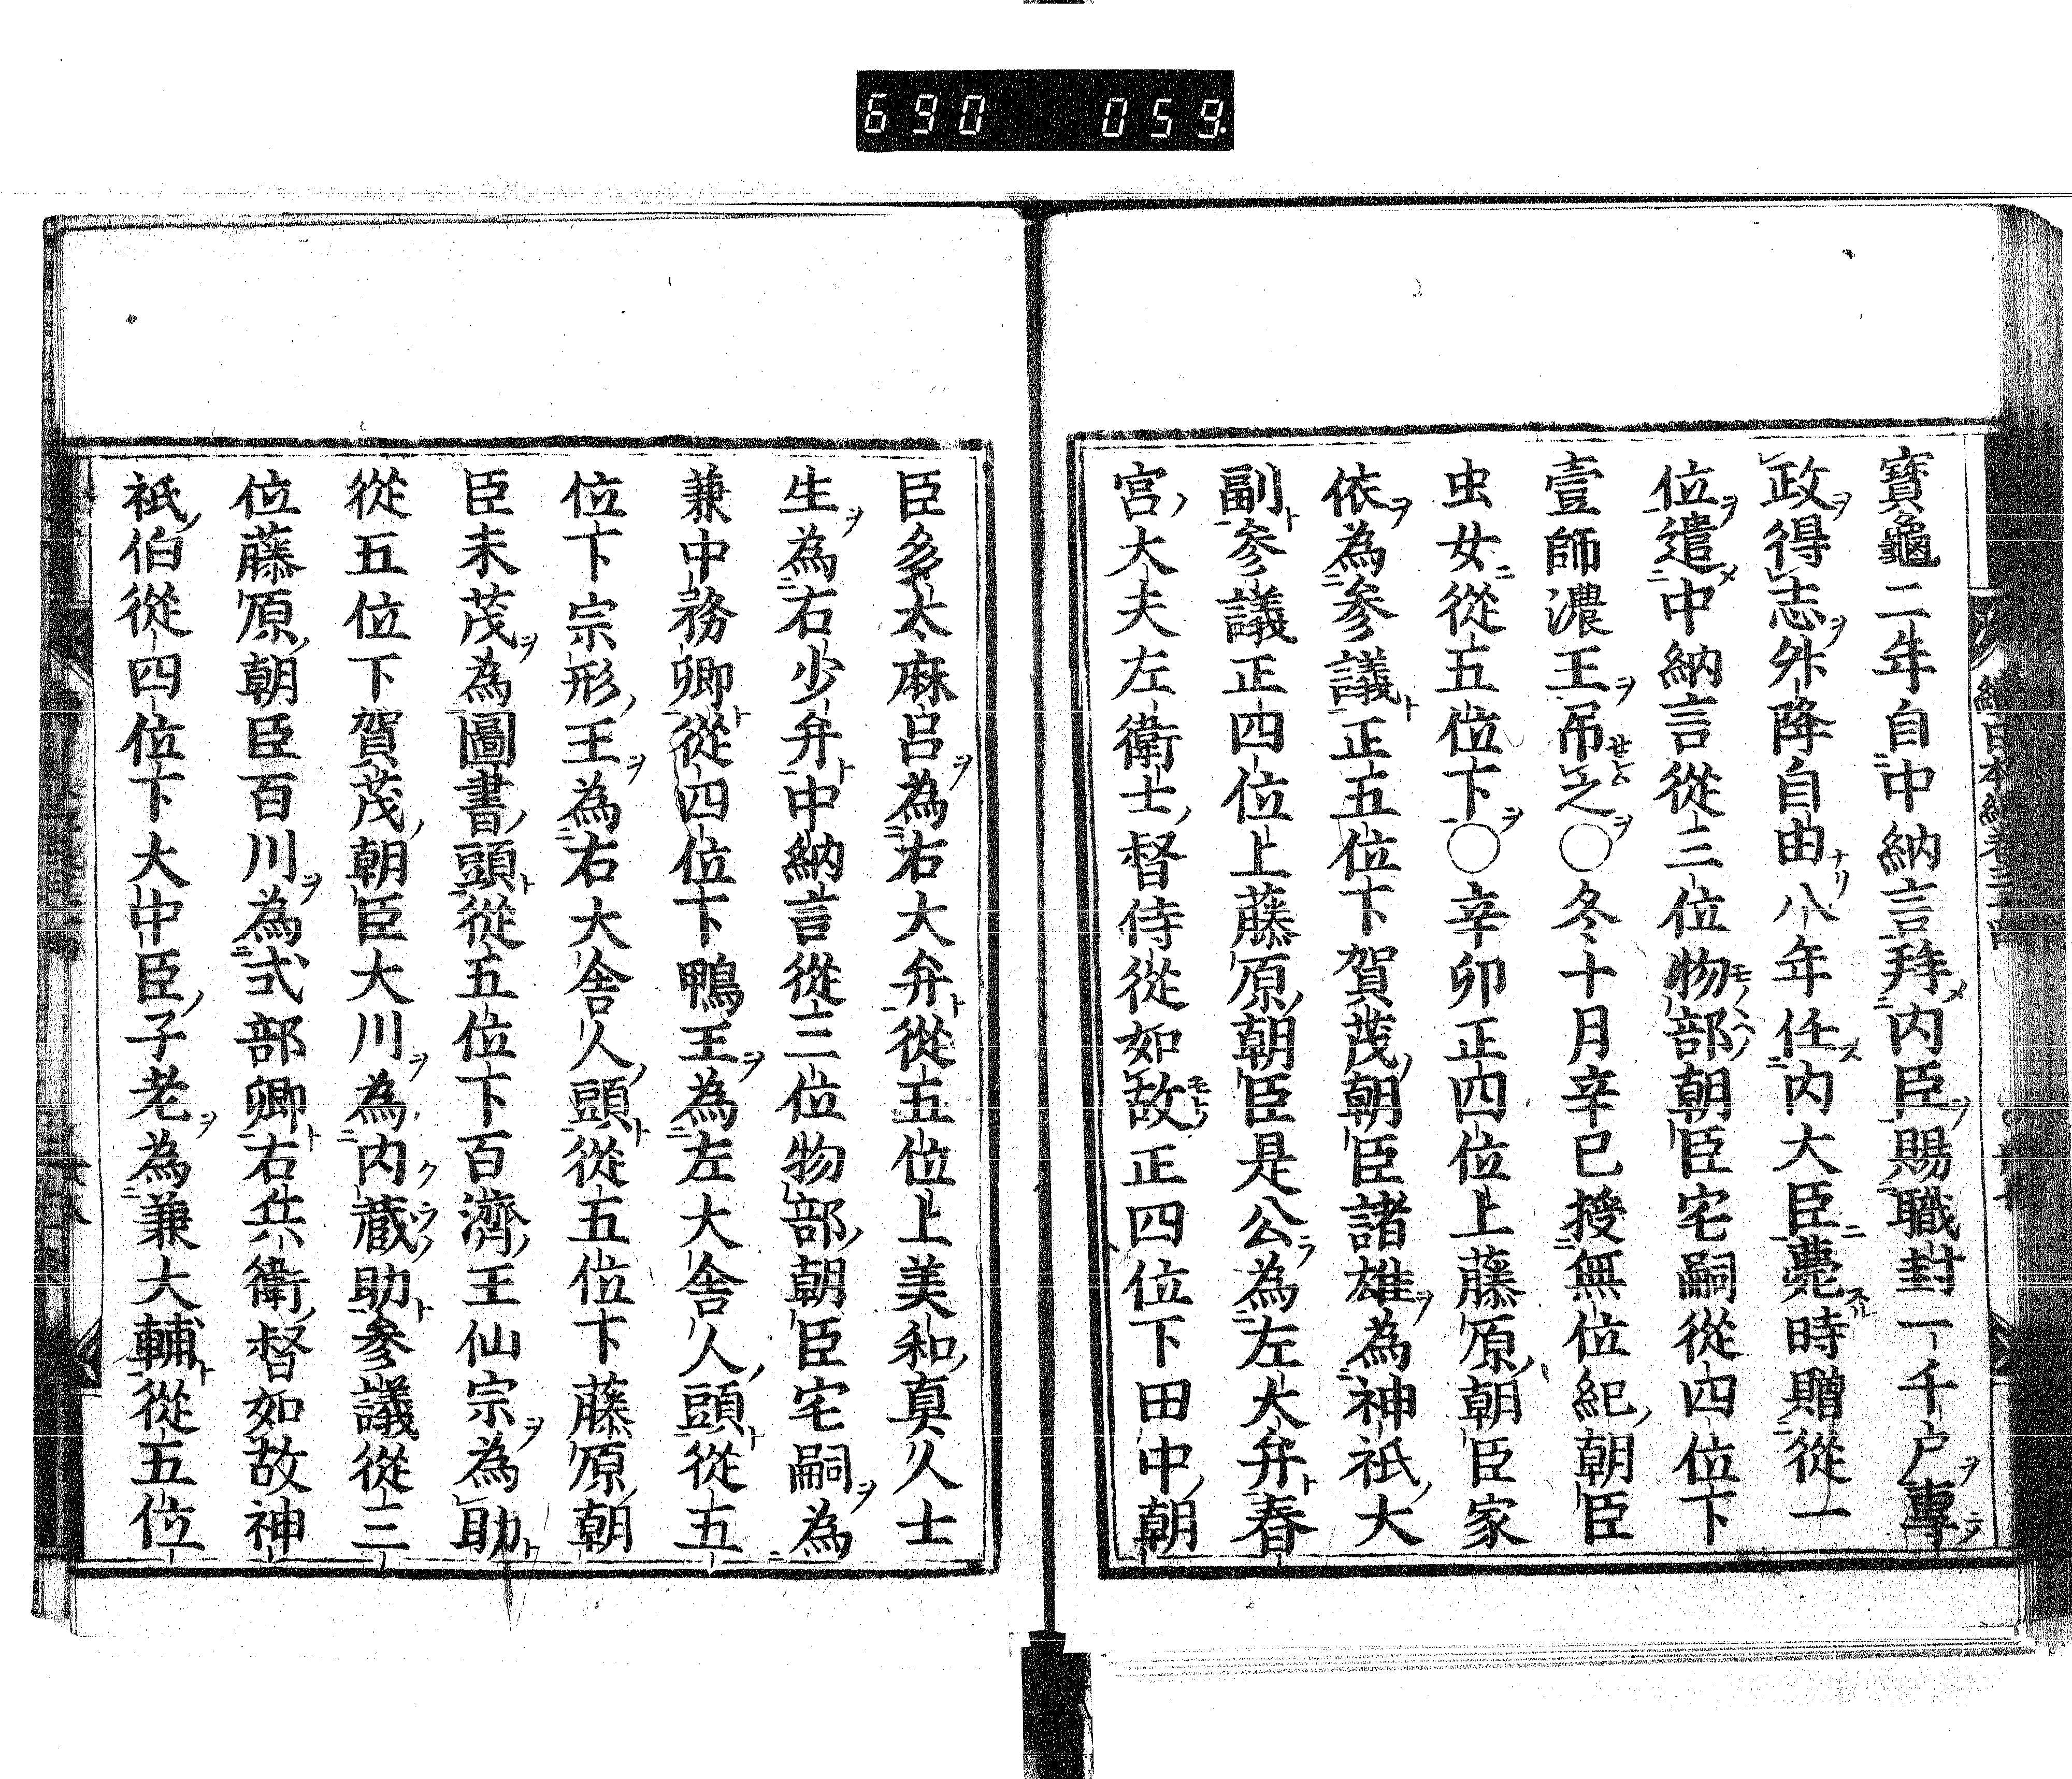 690 059.
寳龜二年自中納言拜内臣賜職封一千户專
政得志升降自由八年任内大臣薨時贈從一
位遣中納言從三位物部朝臣宅嗣從四位下
壹師濃王吊之〇冬十月辛巳授無位紀朝臣
虫女從五位下〇辛卯正四位上藤原朝臣家
依為参議正五位下賀茂朝臣諸雄為神祇大
副参議正四位上藤原朝臣是公為左大弁春
宮大夫左衛士督侍從如故正四位下田中朝
臣多太麻呂為右大弁從五位上美和真人士
生為右少弁中納言從三位物部朝臣宅嗣為
兼中務卿從四位下鴨王為左大舎人頭從五
位下宗形王為右大舎人頭從五位下藤原朝
臣末茂為圖書頭從五位下百濟王仙宗為助
從五位下賀茂朝臣大川為内蔵助参議從三
位藤原朝臣百川為式部卿右兵衛督如故神
祇伯從四位下大中臣子老為兼大輔從五位